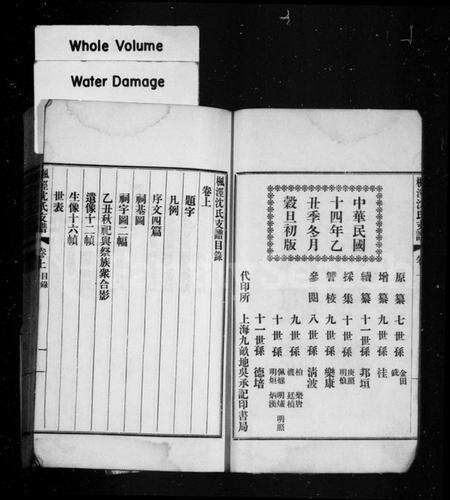 Whole Volume
Water Damage
中華民國
十四年乙
丑季冬月
穀旦初版
原纂 七世孫 金田
增纂 九世孫
續纂 十一世孫 邦垣
採集 十世孫 庚照 明煥
九世孫 樂康
參閱 八世孫 清波
九世孫
十世孫
十一世孫 德培
代印所 上海九畝地吳承記印書局
楓涇沈氏支譜目錄
卷上
題字
凡例
序文四篇
祠基圖
祠宇圖二幅
乙丑秋祀與祭族衆合影
遺像十二幀
生像十六幀
世表
楓涇沈氏支譜 卷上 目錄